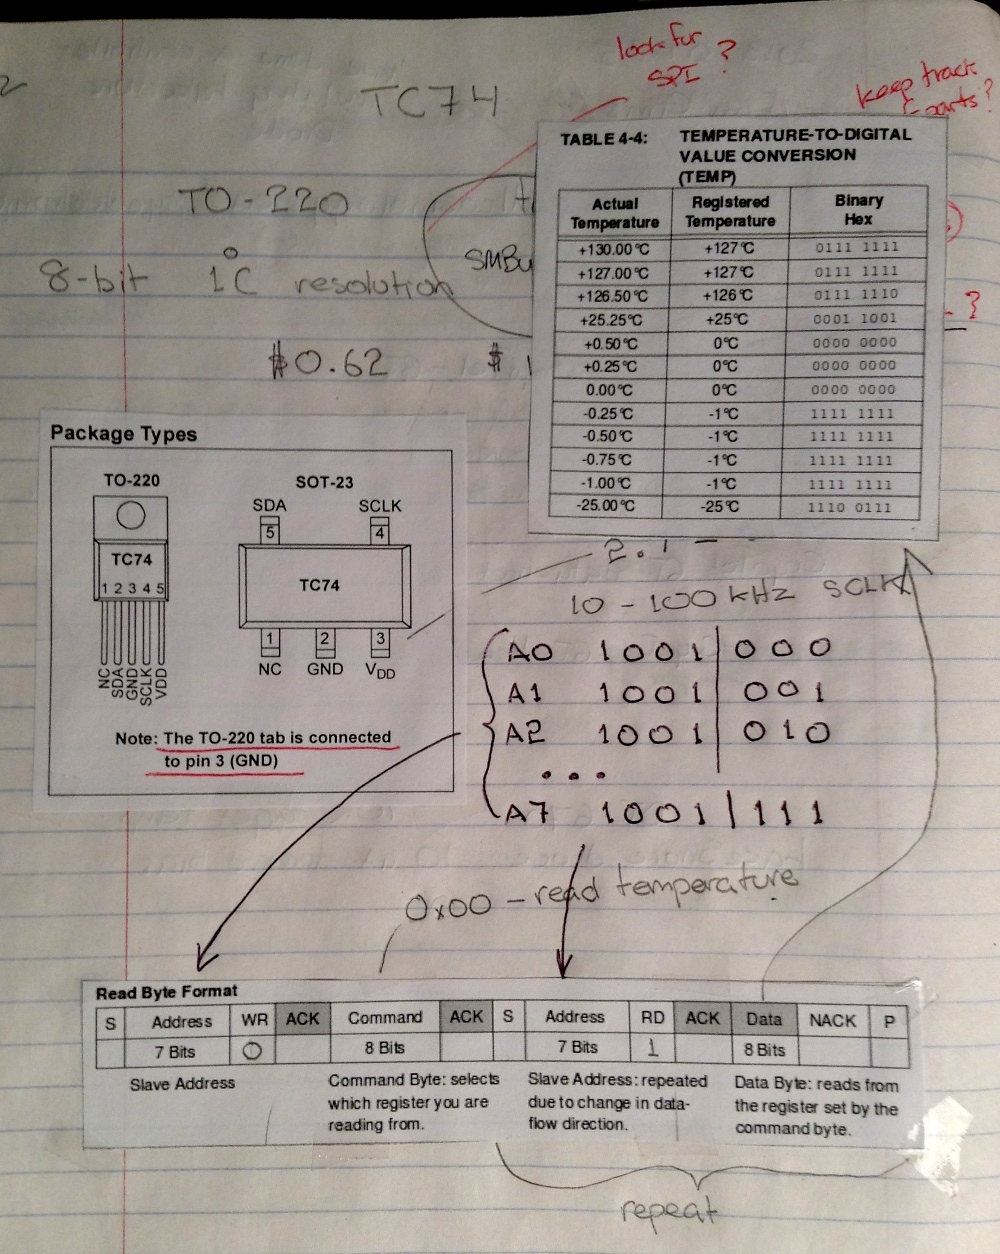 look for
SPI ?
keep track
TC74
TO-220
8-bit 1°C resolution
SMBu
$0.62
$ 1
?
TABLE 4-4: TEMPERATURE-TO-DIGITAL
VALUE CONVERSION
(TEMP)
Actual Temperature Registered Temperature Binary Hex
+130.00°C +127°C 0111 1111
+127.00°C +127°C 0111 1111
+126.50°C +126°C 0111 1110
+25.25°C +25°C 0001 1001
+0.50°C 0°C 0000 0000
+0.25°C 0°C 0000 0000
0.00°C 0°C 0000 0000
-0.25°C -1°C 1111 1111
-0.50°C -1°C 1111 1111
-0.75°C -1°C 1111 1111
-1.00°C -1°C 1111 1111
-25.00°C -25°C 1110 0111
Package Types
TO-220
TC74
1 2 3 4 5
NC SDA GND SCLK VDD
SOT-23
SDA SCLK
5 4
TC74
1 2 3
NC GND VDD
Note: The TO-220 tab is connected
to pin 3 (GND)
2.7 -
10 - 100 kHz SCLK
A0 1001 | 000
A1 1001 | 001
A2 1001 | 010
...
A7 1001 | 111
0x00 - read temperature
Read Byte Format
S Address WR ACK Command ACK S Address RD ACK Data NACK P
7 Bits 0 8 Bits 7 Bits 1 8 Bits
Slave Address
Command Byte: selects
which register you are
reading from.
Slave Address: repeated
due to change in data-
flow direction.
Data Byte: reads from
the register set by the
command byte.
repeat